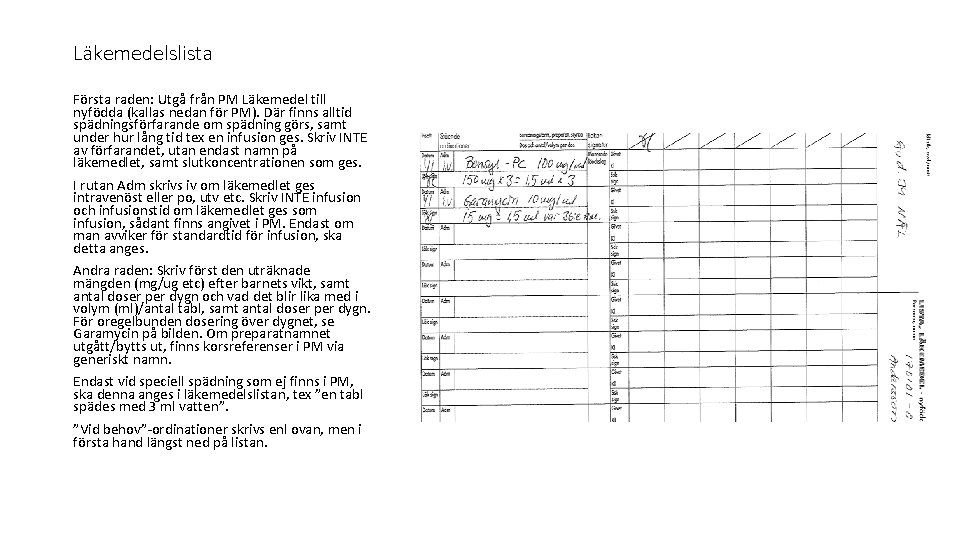 Läkemedelslista
Första raden: Utgå från PM Läkemedel till
nyfödda (kallas nedan för PM). Där finns alltid
spädningsförfarande om spädning görs, samt
under hur lång tid tex en infusion ges. Skriv INTE
av förfarandet, utan endast namn på
läkemedlet, samt slutkoncentrationen som ges.
I rutan Adm skrivs iv om läkemedlet ges
intravenöst eller po, utv etc. Skriv INTE infusion
och infusionstid om läkemedlet ges som
infusion, sådant finns angivet i PM. Endast om
man avviker för standardtid för infusion, ska
detta anges.
Andra raden: Skriv först den uträknade
mängden (mg/ug etc) efter barnets vikt, samt
antal doser per dygn och vad det blir lika med i
volym (ml)/antal tabl, samt antal doser per dygn.
För oregelbunden dosering över dygnet, se
Garamycin på bilden. Om preparatnamnet
utgått/bytts ut, finns korsreferenser i PM via
generiskt namn.
Endast vid speciell spädning som ej finns i PM,
ska denna anges i läkemedelslistan, tex ”en tabl
spädes med 3 ml vatten”.
”Vid behov”-ordinationer skrivs enl ovan, men i
första hand längst ned på listan.
Stående
ordinationer
signatur
Datum Adm Givet
iv Bensyl-Pc 100 mg/ml
150 mg x 3 = 1,5 ml x 3
Datum Adm Givet
iv Garamycin 10 mg/ml
15 mg = 1,5 ml var 36:e tim.
Datum Adm Givet
Läk sign Ssk sign
Datum Adm Givet
Läk sign Ssk sign
Datum Adm Givet
Läk sign Ssk sign
Datum Adm Givet
Läk sign Ssk sign
Datum Adm Givet
Läk sign Ssk sign
Datum Adm Givet
LISTA, LÄKEMEDEL - nyfödd
Andersson